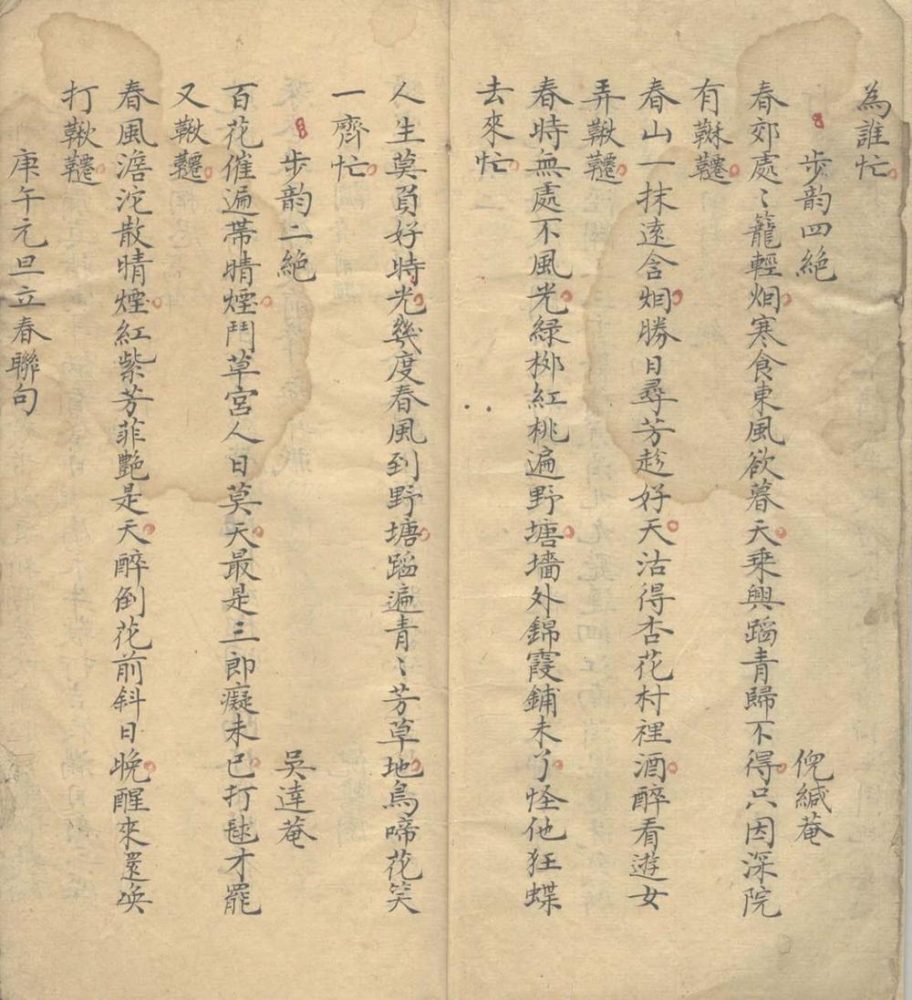 為誰忙
步韵四絶 倪緘菴
春郊處〻籠輕烟寒食東風欲暮天乘興蹈青歸不得只因深院
有鞦韆
春山一抹遠含烟勝日尋芳趁好天沽得杏花村裡酒醉看遊女
弄鞦韆
春時無處不風光綠栁紅桃遍野塘墻外錦霞鋪未了怪他狂蝶
去來忙
人生莫負好時光幾度春風到野塘蹈遍青〻芳草地鳥啼花笑
一齊忙
步韵二絶 吳達菴
百花催遍帶晴煙鬥草宮人日莫天最是三郎癡未已打毬才罷
又鞦韆
春風澹沱散晴煙紅紫芳菲艷是天醉倒花前斜日晚醒來還喚
打鞦韆
庚午元旦立春聯句